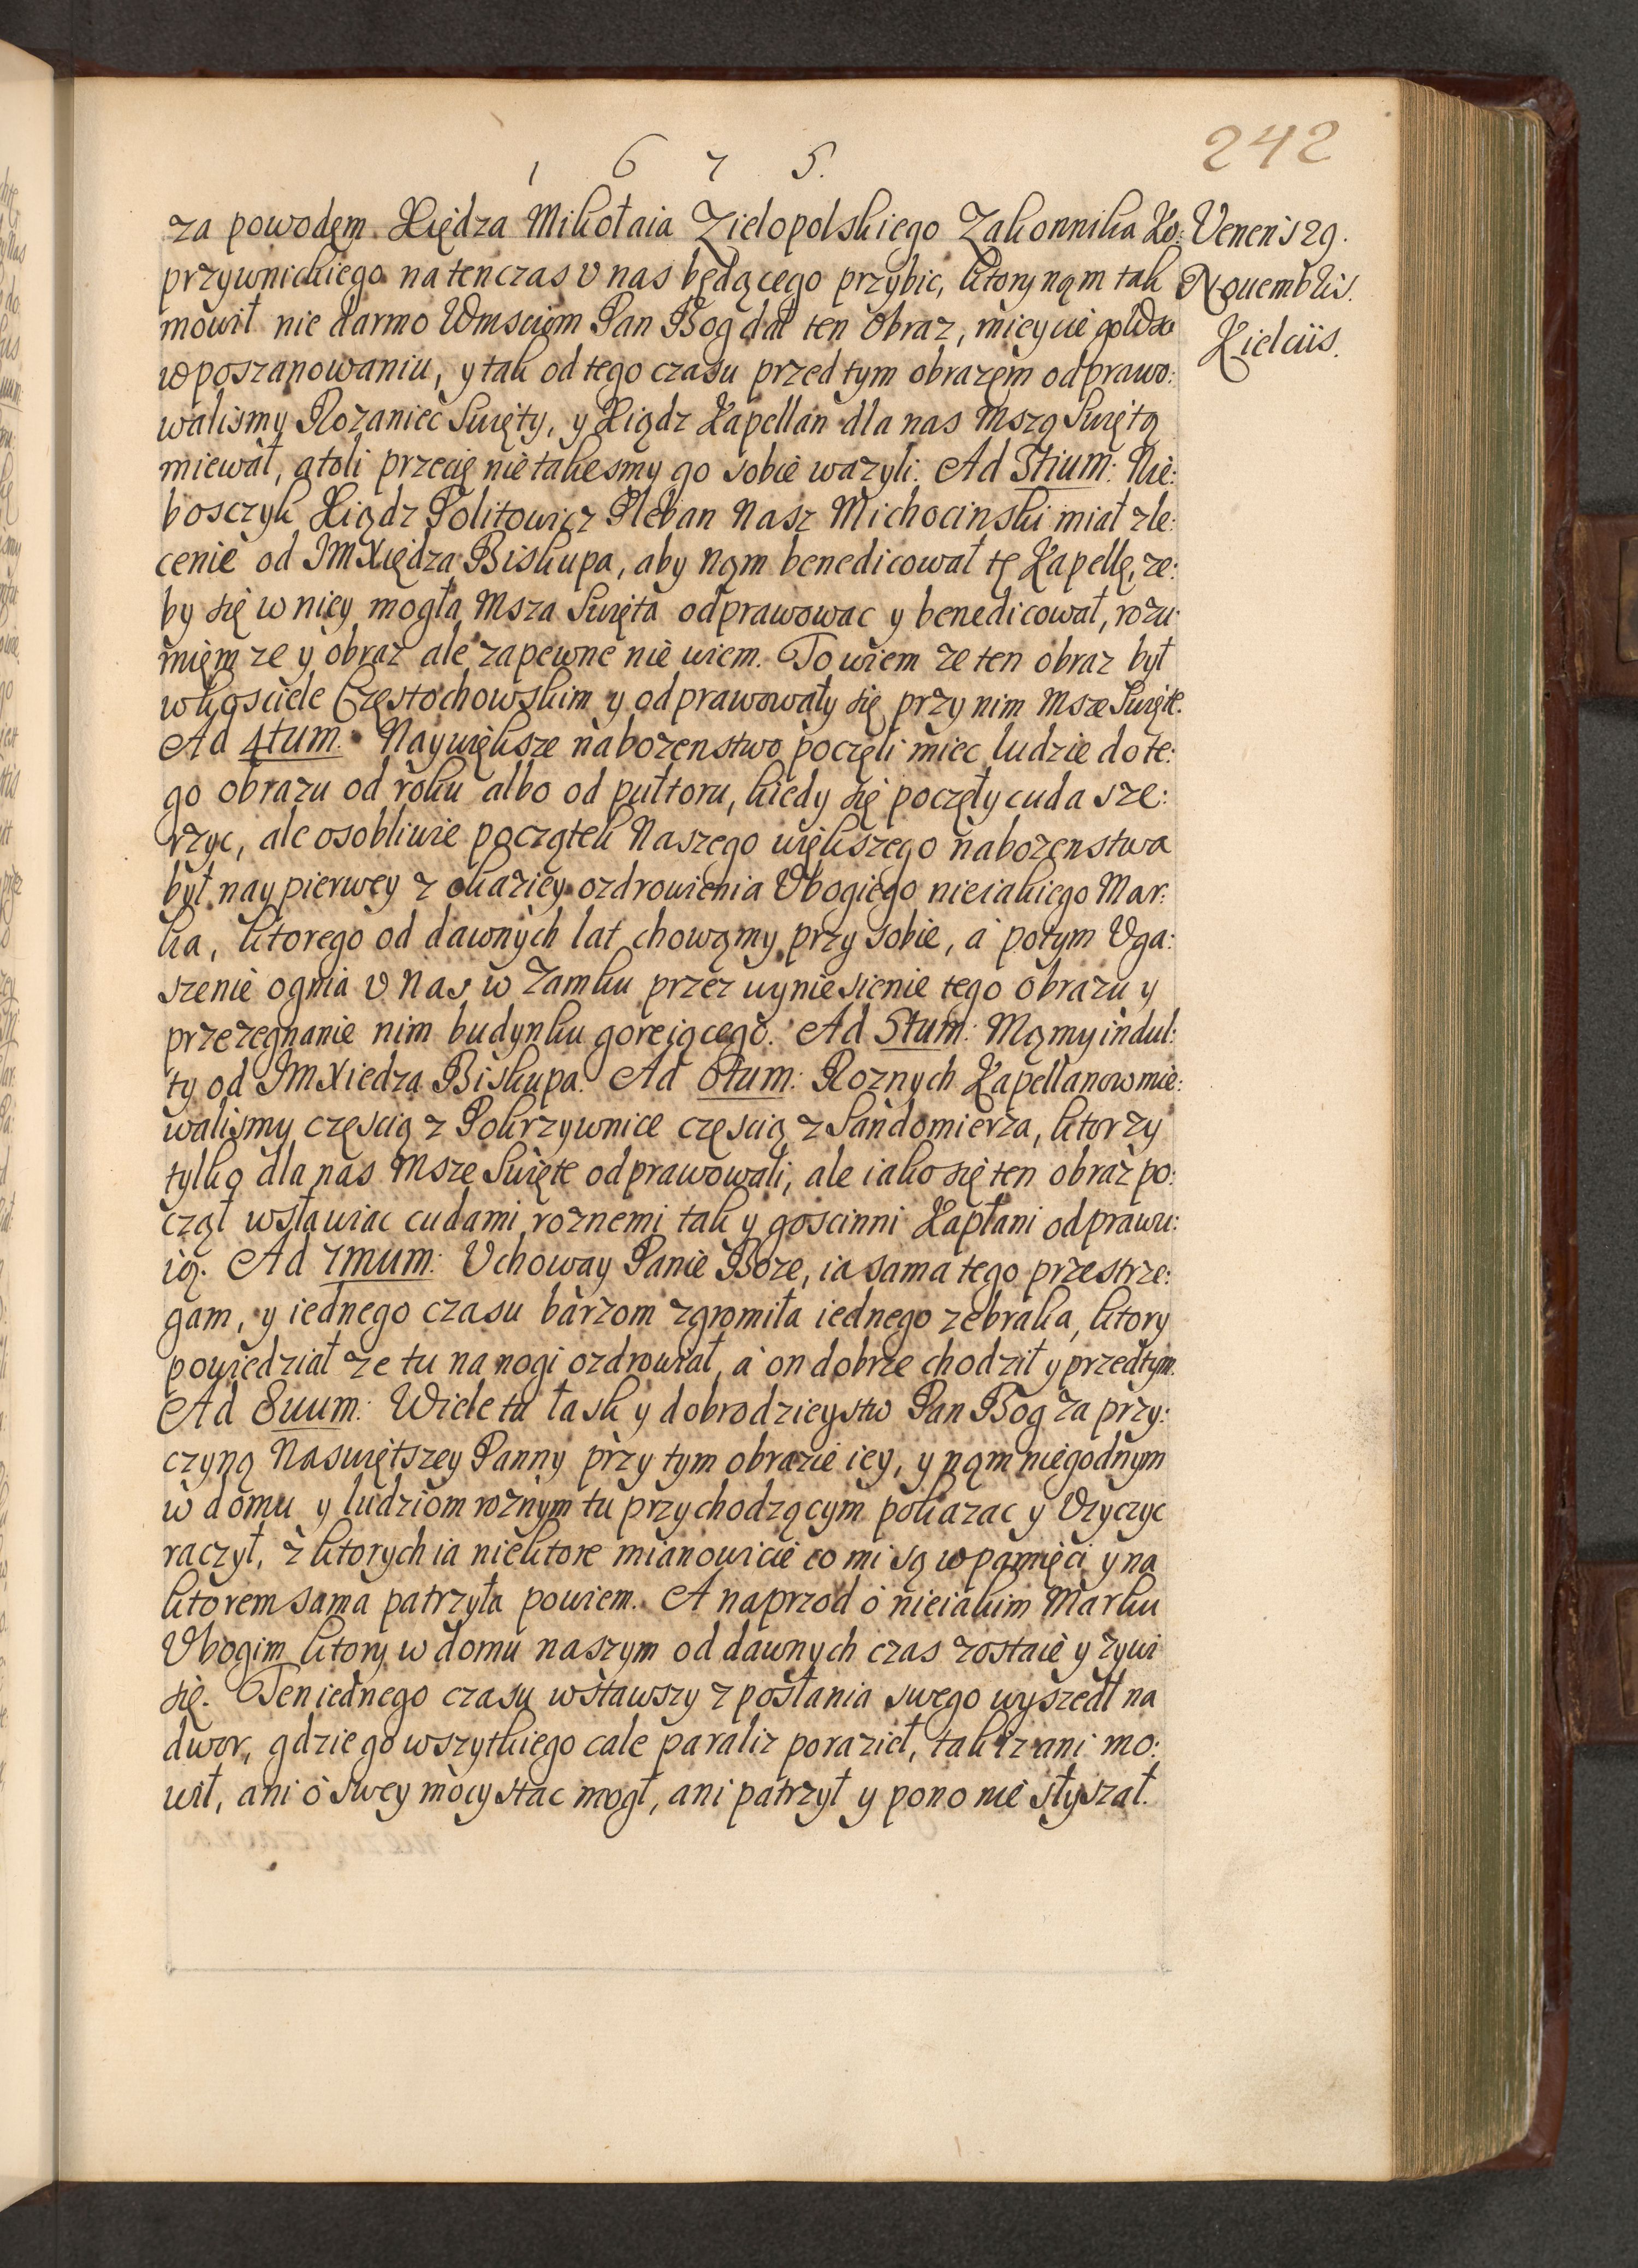 242
1 6 7 5.
za powodęm Xiędza Mikołaia Zielopolskiego Zakonnika Ko:
Veneris 29.
Nouembris.
Kielciis.
przywnickiego na tenczas v nas będącego przybic, ktory nąm tak
mowił nie darmo Wmsciom Pan Bog dał ten obraz, mieycie go
w poszanowaniu, y tak od tego czasu przed tym obrazęm odprawo:
walismy Rozaniec Swięty, y Xiądz Kapellan dla nas Mszą Swiętą
miewał, atoli przecię nie takesmy go sobie wazyli. Ad 3tium: Nie:
bosczyk Xiądz Politowicz Pleban Nasz Michocinski miał zle:
cenie od JMXiędza Biskupa, aby nąm benedicował tę Kapellę, ze:
by się w niey mogła Msza Swięta odprawowac y benedicował, rozu:
mięm ze y obraz ale zapewne nie wiem. To wiem ze ten obraz był
w kosciele Częstochowskim y odprawowały się przy nim Msze Swięte.
Ad 4tum. Naywiększe nabozenstwo poczęli miec ludzie do te:
go obrazu od roku albo od pułtoru, kiedy się poczęły cuda sze:
rzyc, ale osobliwie początek Naszego większego nabozenstwa
był naypierwey z okaziey ozdrowienia Vbogiego nieiakiego Mar:
ka, ktorego od dawnych lat chowąmy przy sobie, a potym Vga:
szenie ognia v Nas w Zamku przez wyniesienie tego obrazu y
przezegnanie nim budynku goreiącego. Ad 5tum: Mąmy indul:
ty od JMXiedza Biskupa. Ad 6tum: Roznych Kapellanow mie:
walismy częscią z Pokrzywnice częscią z Sandomierza, ktorzy
tylko dla nas Msze Swięte odprawowali, ale iako się ten obraz po:
czął wsławiac cudami roznemi tak y goscinni Kapłani odprawu:
ią. Ad 7mum: Vchoway Panie Boze, ia sama tego przestrze:
gam, y iednego czasu barzom zgromiła iednego zebraka, ktory
powiedział ze tu na nogi ozdrowiał, a on dobrze chodził y przedtym.
Ad 8uum: Wiele tu łask y dobrodzieystw Pan Bog za przy:
czyną Naswiętszey Panny przy tym obrazie iey, y nąm niegodnym
w domu y ludziom roznym tu przychodzącym pokazac y Vzyczyc
raczył, z ktorych ia niektore mianowicie co mi są w pamięci y na
ktorem sama patrzyła powiem. A naprzod o nieiakim Marku
Vbogim ktory w domu naszym od dawnych czas zostaie y zywi
się. Ten iednego czasu wstawszy z posłania swego wyszedł na
dwor, gdzie go wszytkiego cale paraliz poraził, tak iz ani mo:
wił, ani o swey mocy stac mogł, ani patrzył y pono nie słyszał.